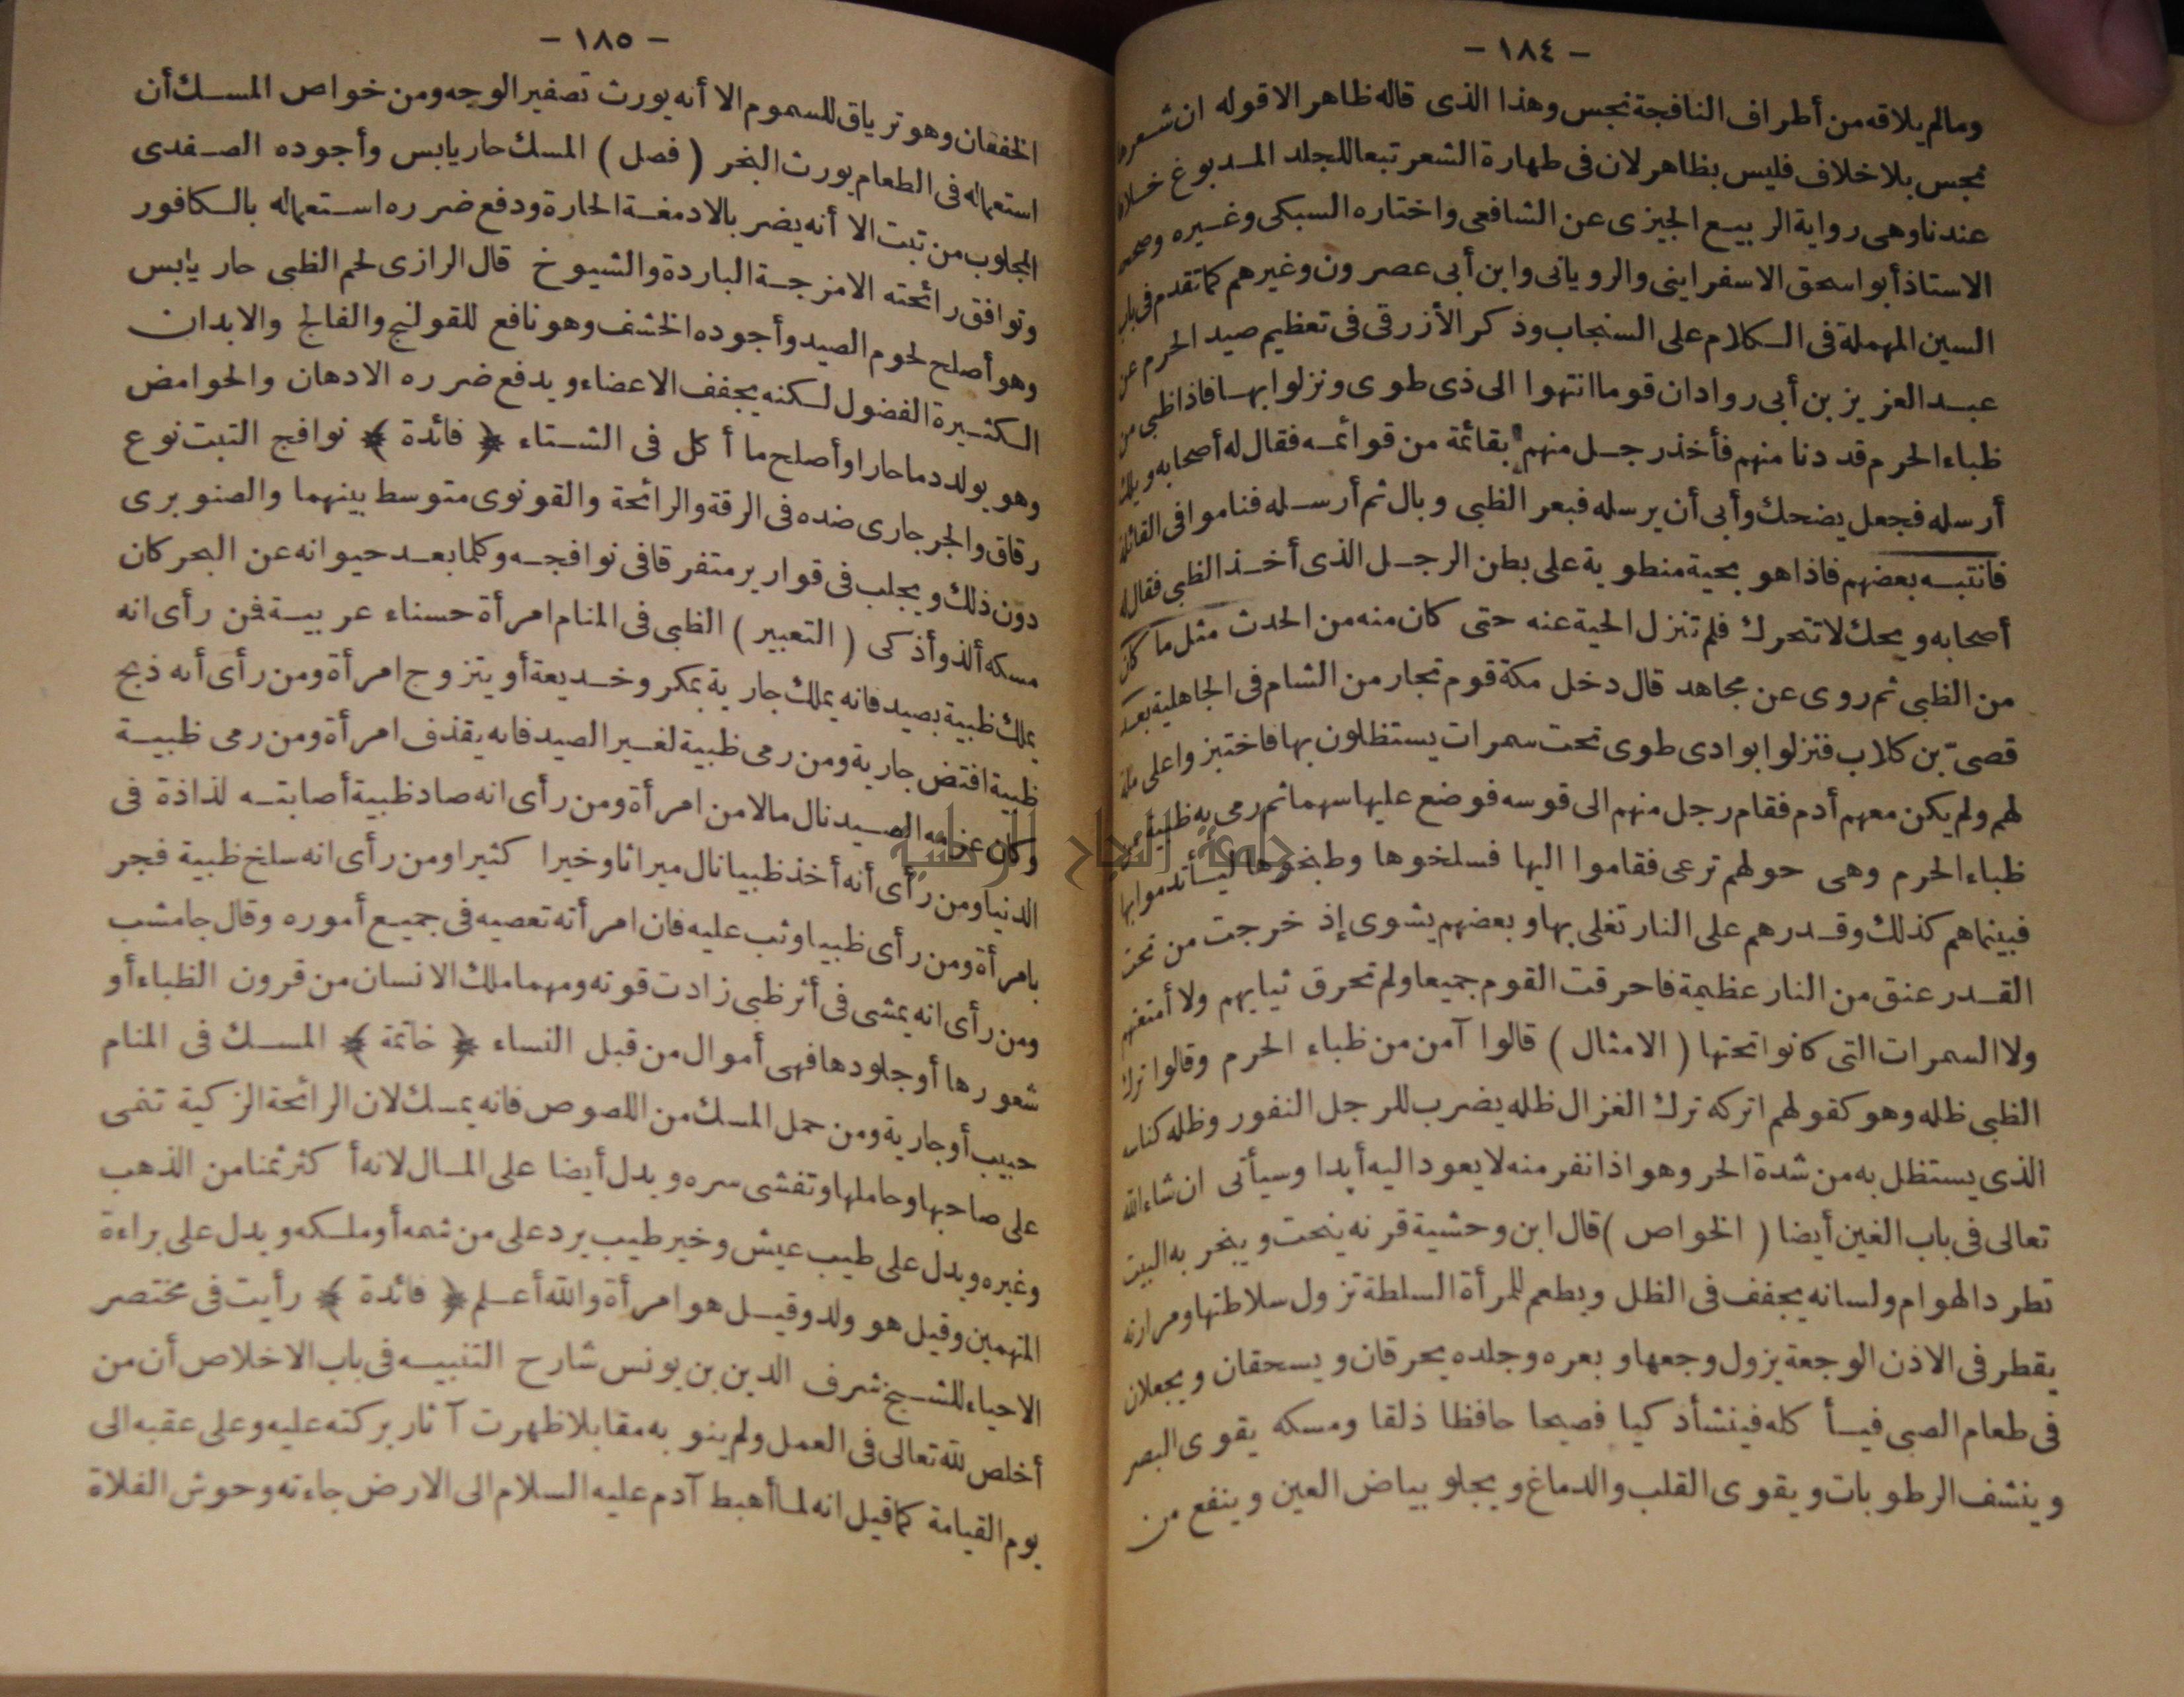 - ١٨٤ -
ومالم يلاقه من أطراف النافجة نجس وهذا الذى قاله ظاهر الا قوله ان شعره
نجس بلا خلاف فليس بظاهر لان فى طهارة الشعر تبعا للجلد المدبوغ خلافا
عندنا وهى رواية الربيع الجيزى عن الشافعى واختاره السبكى وغيره وصححه
الاستاذ أبو اسحق الاسفراينى والرويانى وابن أبى عصرون وغيرهم كما تقدم فى باب
السين المهملة فى الكلام على السنجاب وذكر الأزرقى فى تعظيم صيد الحرم عن
عبد العزيز بن أبى رواد ان قوما انتهوا الى ذى طوى ونزلوا بها فاذا ظبى من
ظباء الحرم قد دنا منهم فأخذ رجل منهم بقائمة من قوائمه فقال له أصحابه ويلك
أرسله فجعل يضحك وأبى أن يرسله فبعر الظبى وبال ثم أرسله فناموا فى القائلة
فانتبه بعضهم فاذا هو بحية منطوية على بطن الرجل الذى أخذ الظبى فقال له
أصحابه ويحك لا تتحرك فلم تنزل الحية عنه حتى كان منه من الحدث مثل ما كان
من الظبى ثم روى عن مجاهد قال دخل مكة قوم تجار من الشام فى الجاهلية بعد
قصىّ بن كلاب فنزلوا بوادى طوى تحت سمرات يستظلون بها فاختبزوا على ملة
لهم ولم يكن معهم أدم فقام رجل منهم الى قوسه فوضع عليها سهما ثم رمى به ظبية من
ظباء الحرم وهى حولهم ترعى فقاموا اليها فسلخوها وطبخوها ليأتدموا بها
فبينماهم كذلك وقدرهم على النار تغلى بها وبعضهم يشوى إذ خرجت من تحت
القدر عنق من النار عظيمة فاحرقت القوم جميعا ولم تحرق ثيابهم ولا أمتعتهم
ولا السمرات التى كانوا تحتها ( الامثال ) قالوا آمن من ظباء الحرم وقالوا ترك
الظبى ظله وهو كقولهم اتركه ترك الغزال ظله يضرب للرجل النفور وظله كناسه
الذى يستظل به من شدة الحر وهو اذا نفر منه لا يعود اليه أبدا وسيأتى ان شاء الله
تعالى فى باب الغين أيضا ( الخواص ) قال ابن وحشية قرنه ينحت ويبخر به البيت
تطرد الهوام ولسانه يجفف فى الظل ويطعم للمرأة السلطة تزول سلاطتها ومرارته
يقطر فى الاذن الوجعة يزول وجعها وبعره وجلده يحرقان ويسحقان ويجعلان
فى طعام الصبى فيأ كله فينشأ ذكيا فصيحا حافظا ذلقا ومسكه يقوى البصر
وينشف الرطوبات ويقوى القلب والدماغ ويجلو بياض العين وينفع من
- ١٨٥ -
الخفقان وهو ترياق للسموم الا أنه يورث تصفير الوجه ومن خواص المسك أن
استعماله فى الطعام يورث البخر ( فصل ) المسك حار يابس وأجوده الصغدى
المجلوب من تبت الا أنه يضر بالادمغة الحارة ودفع ضرره استعماله بالكافور
وتوافق رائحته الامزجة الباردة والشيوخ قال الرازى لحم الظبى حار يابس
وهو أصلح لحوم الصيد وأجوده الخشف وهو نافع للقولنج والفالج والابدان
الكثيرة الفضول لكنه يجفف الاعضاء ويدفع ضرره الادهان والحوامض
وهو يولد دما حارا وأصلح ما أكل فى الشتاء ﴿ فائدة ﴾ نوافج التبت نوع
رقاق والجرجارى ضده فى الرقة والرائحة والقونوى متوسط بينهما والصنوبرى
دون ذلك ويجلب فى قوارير متفرقا فى نوافجه وكلما بعد حيوانه عن البحر كان
مسكه ألذ وأذكى ( التعبير ) الظبى فى المنام امرأة حسناء عربية فمن رأى انه
يملك ظبية بصيد فانه يملك جارية بمكر وخديعة أو يتزوج امرأة ومن رأى أنه ذبح
ظبية افتض جارية ومن رمى ظبية لغير الصيد فانه يقذف امرأة ومن رمى ظبية
وكان عزمه الصيد نال مالا من امرأة ومن رأى انه صاد ظبية أصابته لذاذة فى
الدنيا ومن رأى أنه أخذ ظبيا نال ميراثا وخيرا كثيرا ومن رأى انه سلخ ظبية فجر
بامرأة ومن رأى ظبيا وثب عليه فان امرأته تعصيه فى جميع أموره وقال جامسب
ومن رأى انه يمشى فى أثر ظبى زادت قوته ومهما ملك الانسان من قرون الظباء أو
شعورها أو جلودها فهى أموال من قبل النساء ﴿ خاتمة ﴾ المسك فى المنام
حبيب أو جارية ومن حمل المسك من اللصوص فانه يمسك لان الرائحة الزكية تنمى
على صاحبها وحاملها وتفشى سره ويدل أيضا على المال لانه أكثر ثمنا من الذهب
وغيره ويدل على طيب عيش وخير طيب يرد على من شمه أو ملكه ويدل على براءة
المتهمين وقيل هو ولد وقيل هو امرأة والله أعلم ﴿ فائدة ﴾ رأيت فى مختصر
الاحياء للشيخ شرف الدين بن يونس شارح التنبيه فى باب الاخلاص أن من
أخلص لله تعالى فى العمل ولم ينو به مقابلا ظهرت آثار بركته عليه وعلى عقبه الى
يوم القيامة كما قيل انه لما أهبط آدم عليه السلام الى الارض جاءته وحوش الفلاة
جامعة النجاح الوطنية